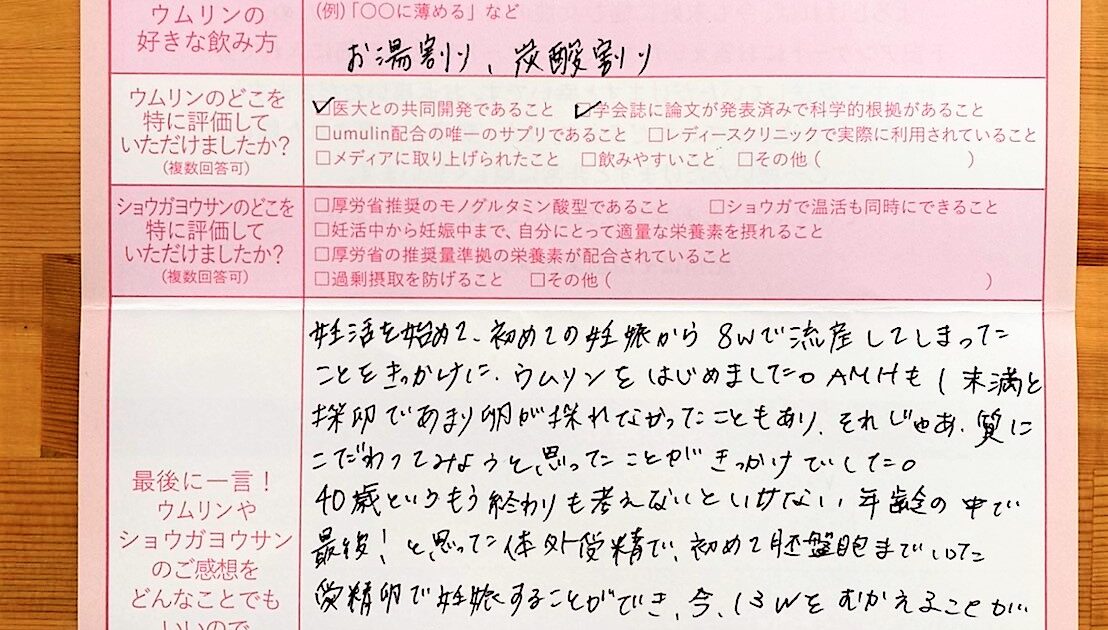 ウムリンの
好きな飲み方
(例)「〇〇に薄める」など
お湯割り、炭酸割り
ウムリンのどこを
特に評価して
いただけましたか?
(複数回答可)
☑医大との共同開発であること ☑学会誌に論文が発表済みで科学的根拠があること
□umulin配合の唯一のサプリであること □レディースクリニックで実際に利用されていること
□メディアに取り上げられたこと □飲みやすいこと □その他( )
ショウガヨウサンのどこを
特に評価して
いただけましたか?
(複数回答可)
□厚労省推奨のモノグルタミン酸型であること □ショウガで温活も同時にできること
□妊活中から妊娠中まで、自分にとって適量な栄養素を摂れること
□厚労省の推奨量準拠の栄養素が配合されていること
□過剰摂取を防げること □その他( )
最後に一言!
ウムリンや
ショウガヨウサン
のご感想を
どんなことでも
いいので
妊活を始めて、初めての妊娠から8Wで流産してしまった
ことをきっかけに、ウムリンをはじめました。AMHも1未満と
採卵であまり卵が採れなかったこともあり、それじゃあ、質に
こだわってみようと思ったことがきっかけでした。
40歳というもう終わりも考えないといけない年齢の中で
最後!と思った体外受精で、初めて胚盤胞までいった
受精卵で妊娠することができ、今、13Wをむかえることが